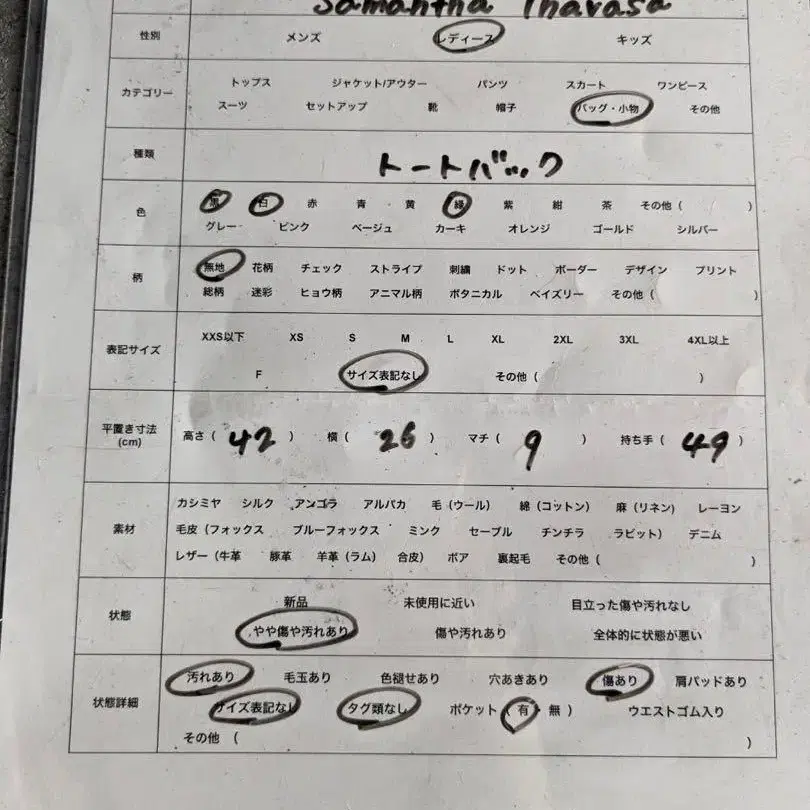 Samantha Thavasa
性別 メンズ レディース キッズ
カテゴリー トップス ジャケット/アウター パンツ スカート ワンピース
スーツ セットアップ 靴 帽子 バッグ・小物 その他
種類 トートバック
色 黒 白 赤 青 黄 緑 紫 紺 茶 その他 ( )
グレー ピンク ベージュ カーキ オレンジ ゴールド シルバー
柄 無地 花柄 チェック ストライプ 刺繍 ドット ボーダー デザイン プリント
総柄 迷彩 ヒョウ柄 アニマル柄 ボタニカル ペイズリー その他 ( )
表記サイズ XXS以下 XS S M L XL 2XL 3XL 4XL以上
F サイズ表記なし その他 ( )
平置き寸法
(cm)
高さ ( 42 ) 横 ( 26 ) マチ ( 9 ) 持ち手 ( 49 )
素材 カシミヤ シルク アンゴラ アルパカ 毛 (ウール) 綿 (コットン) 麻 (リネン) レーヨン
毛皮 (フォックス ブルーフォックス ミンク セーブル チンチラ ラビット) デニム
レザー (牛革 豚革 羊革 (ラム) 合皮) ボア 裏起毛 その他 ( )
状態 新品 未使用に近い 目立った傷や汚れなし
やや傷や汚れあり 傷や汚れあり 全体的に状態が悪い
状態詳細 汚れあり 毛玉あり 色褪せあり 穴あきあり 傷あり 肩パッドあり
サイズ表記なし タグ類なし ポケット ( 有 ・ 無 ) ウエストゴム入り
その他 ( )